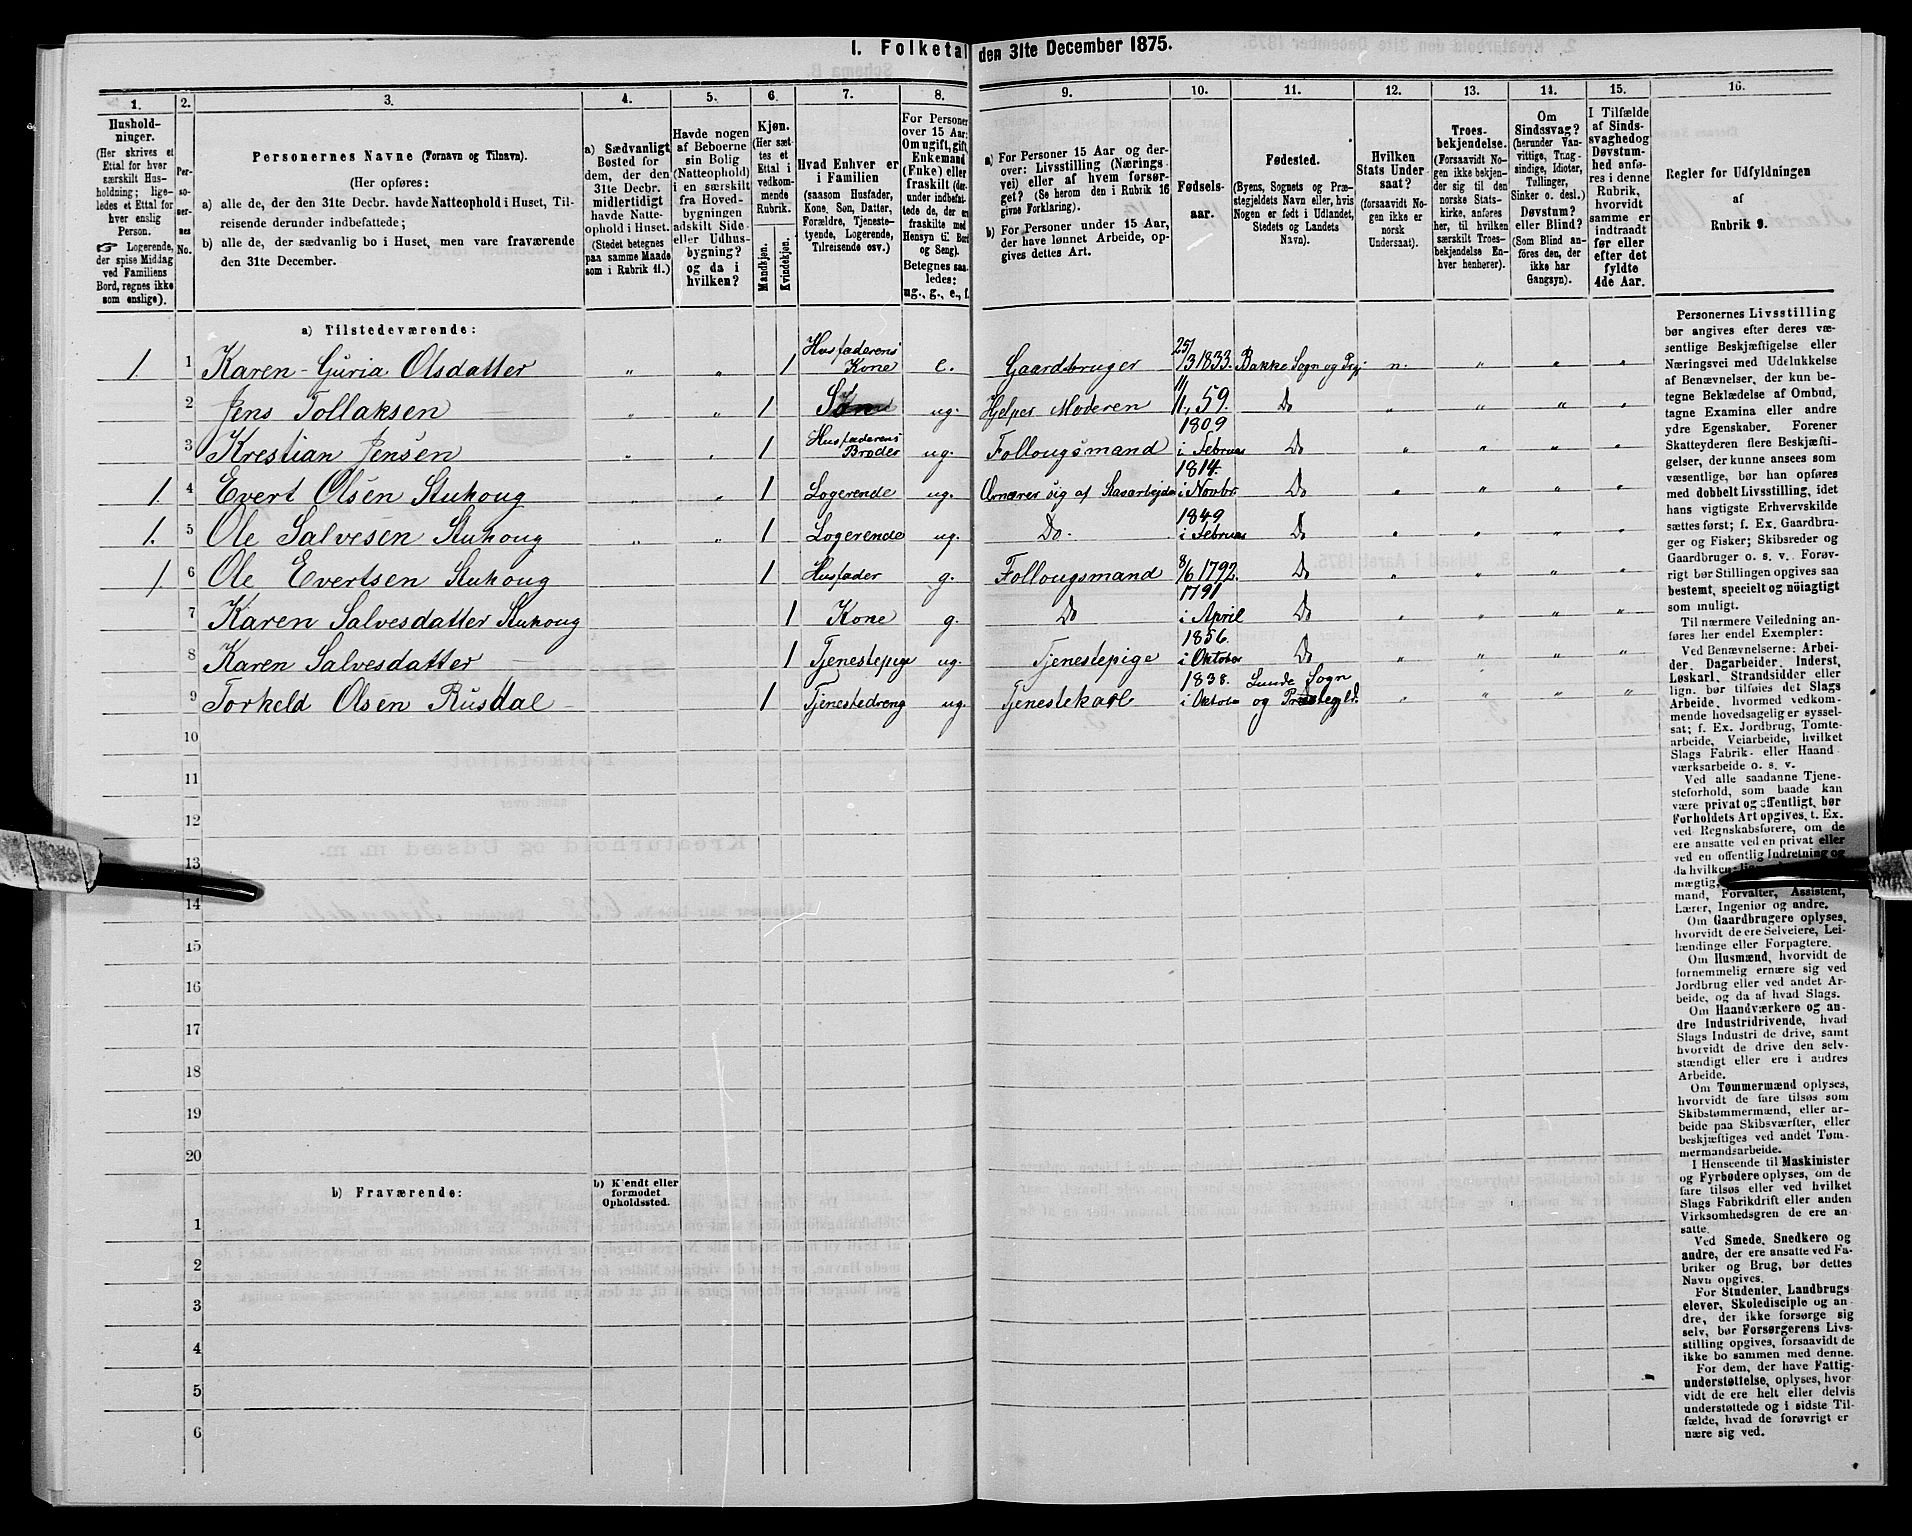 I. Folketal den 31te December 1875.
1. 2. 3. 4. 5. 6. 7. 8. 9. 10. 11. 12. 13. 14. 15. 16.
Hushold-
ninger.
(Her skrives et
Ettal for hver
særskilt Hus-
holdning; lige-
ledes et Ettal for
hver enslig
Person.
☞ Logerende,
der spise Middag
ved Familiens
Bord, regnes ikke
som enslige).
Per-
so-
nernes
No.
Personernes Navne (Fornavn og Tilnavn).
(Her opføres:
a) alle de, der den 31te Decbr. havde Natteophold i Huset, Til-
reisende derunder indbefattede;
b) alle de, der sædvanlig bo i Huset, men vare fraværende
den 31te December.
a) Sædvanligt
Bosted for
dem, der den
31te Decbr.
midlertidigt
havde Natte-
ophold i Huset.
(Stedet betegnes
paa samme Maade
som i Rubrik 11.)
Havde nogen
af Beboerne
sin Bolig
(Natteophold)
i en særskilt
fra Hoved-
bygningen
adskilt Side-
eller Udhus-
bygning?
og da i
hvilken?
Kjøn.
(Her sæt-
tes et
Ettal i
vedkom-
mende
Rubrik.
Mandkjøn.
Kvindekjøn.
Hvad Enhver er
i Familien
(saasom Husfader,
Kone, Søn, Datter,
Forældre, Tjeneste-
tyende, Logerende,
Tilreisende osv.)
For Personer
over 15 Aar:
Om ugift, gift,
Enkemand
(Enke) eller
fraskilt (der-
under indbefat-
tede de, der ere
fraskilte med
Hensyn til Bord
og Seng).
Betegnes saa-
ledes:
ug., g., e., f.
a) For Personer 15 Aar og der-
over: Livsstilling (Nærings-
vei) eller af hvem forsør-
get? (Se herom den i Rubrik 16
givne Forklaring).
b) For Personer under 15 Aar,
der have lønnet Arbeide, op-
gives dettes Art.
Fødsels-
aar.
Fødested.
(Byens, Sognets og Præ-
stegjeldets Navn eller, hvis
Nogen er født i Udlandet,
Stedets og Landets
Navn).
Hvilken
Stats Under-
saat?
(forsaavidt No-
gen ikke er
norsk
Undersaat).
Troes-
bekjendelse.
(Forsaavidt No-
gen ikke bekjen-
der sig til den
norske Stats-
kirke, anføres
her, til hvilken
særskilt Troes-
bekjendelse En-
hver henhører).
Om
Sindssvag?
(herunder Van-
vittige, Tung-
sindige, Idioter,
Tullinger,
Sinker o. desl.)
Døvstum?
eller Blind?
(Som Blind an-
føres den, der
ikke har
Gangsyn).
I Tilfælde
af Sinds-
svaghed og
Døvstum-
hed anfø-
res i denne
Rubrik,
hvorvidt
samme er
indtraadt
før eller
efter det
fyldte
4de Aar.
Regler for Udfyldningen
af
Rubrik 9.
a) Tilstedeværende:
1 1 Karen-Guria Olsdatter „ „ 1 Husfaderens Kone e. Gaardbruger 25/3 1833. Bakke Sogn og Prgj n. „ „ „
2 Jens Tollaksen „ „ 1 Søn ug. Hjelper Moderen 11/1, 59. Do „ „ „ „
3 Krestian Jensen „ „ 1 Husfaderens Broder ug. Follougsmand 1809 i Februar Do „ „ „ „
1. 4 Evert Olsen Stuhoug „ „ 1 Logerende ug. Ernærer sig af Løsarbejde 1814. i Novbr Do „ „ „ „
1. 5 Ole Salvesen Stuhoug „ „ 1 Logerende ug. Do. 1849 i Februar Do „ „ „ „
1 6 Ole Evertsen Stuhoug 1 Husfader g. Follougsmand 8/6 1792. Do „ „ „ „
7 Karen Salvesdatter Stuhoug 1 Kone g. Do 1791 i April Do „ „ „ „
8 Karen Salvesdatter 1 Tjenestepige ug. Tjenestepige 1856. i Oktober Do „ „ „ „
9 Torkeld Olsen Rusdal 1 Tjenestedreng ug. Tjenestekarl 1838. i Oktober Lunde Sogn og Præstegjld. „ „ „ „
10
11
12
13
14
15
16
17
18
19
20
b) Fraværende:
b) Kjendt eller
formodet
Opholdssted.
1
2
3
4
5
6
Personernes Livsstilling
bør angives efter deres væ-
sentlige Beskjæftigelse eller
Næringsvei med Udelukkelse
af Benævnelser, der kun be-
tegne Beklædelse af Ombud,
tagne Examina eller andre
ydre Egenskaber. Forener
Skatteyderen flere Beskjæfti-
gelser, der kunne ansees som
væsentlige, bør han opføres
med dobbelt Livsstilling, idet
hans vigtigste Erhvervskilde
sættes først; f. Ex. Gaardbru-
ger og Fisker; Skibsreder og
Gaardbruger o. s. v. Forøv-
rigt bør Stillingen opgives saa
bestemt, specielt og nöiagtigt
som muligt.
Til nærmere Veiledning an-
føres her endel Exempler:
Ved Benævnelserne: Arbei-
der, Dagarbeider, Inderst,
Løskarl, Strandsidder eller
lign. bør tilføies det Slags
Arbeide, hvormed vedkom-
mende hovedsagelig er syssel-
sat; f. Ex. Jordbrug, Tomte-
arbeide, Veiarbeide, hvilket
Slags Fabrik- eller Haand-
værksarbeide o. s. v.
Ved alle saadanne Tjene-
steforhold, som baade kan
være privat og offentligt, bør
Forholdets Art opgives, t. Ex.
ved Regnskabsførere, om de
ere ansatte ved en privat eller
ved en offentlig Indretning og
da hvilken;
mægtig,
mand, Forvalter, Assistent,
Lærer, Ingeniør og andre.
Om Gaardbrugere oplyses,
hvorvidt de ere Selveiere, Lei-
lændinge eller Forpagtere.
Om Husmænd, hvorvidt de
fornemmelig ernære sig ved
Jordbrug eller ved andet Ar-
beide, og da af hvad Slags.
Om Haandværkere og an-
dre Industridrivende, hvad
Slags Industri de drive, samt
hvorvidt de drive den selv-
stændigt eller ere i andres
Arbeide.
Om Tømmermænd oplyses,
hvorvidt de fare tilsøs som
Skibstømmermænd, eller ar-
beide paa Skibsværfter, eller
beskjæftiges ved andet Tøm-
mermandsarbeide.
I Henseende til Maskinister
og Fyrbødere oplyses, om de
fare tilsøs eller ved hvilket
Slags Fabrikdrift eller anden
Virksomhedsgren de ere an-
satte.
Ved Smede, Snedkere og
andre, der ere ansatte ved Fa-
briker og Brug, bør dettes
Navn opgives.
For Studenter, Landbrugs-
elever, Skoledisciple og an-
dre, der ikke forsørge sig
selv, bør Forsørgerens Livs-
stilling opgives, forsaavidt de
ikke bo sammen med denne.
For dem, der have Fattig-
understøttelse, oplyses, hvor-
vidt de ere helt eller delvis
understøttede og i sidste Til-
fælde, hvad de forøvrigt er-
nære sig ved.